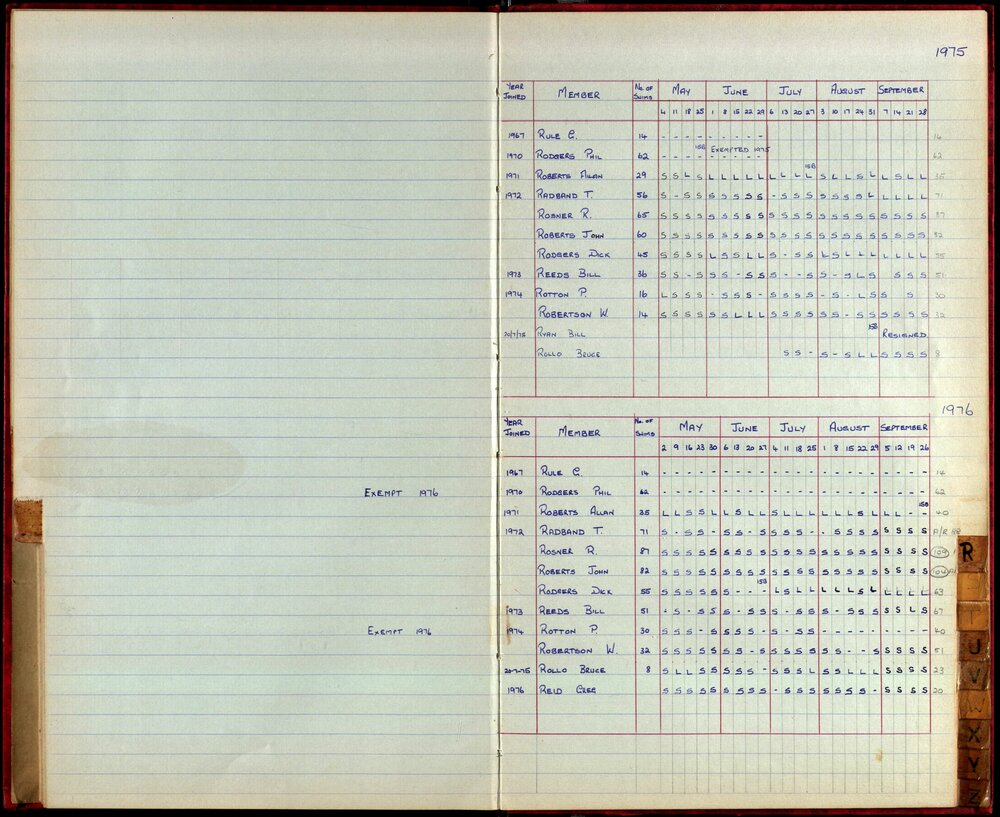 1975
YEAR JOINED MEMBER No. OF SWIMS MAY JUNE JULY AUGUST SEPTEMBER
4 11 18 25 1 8 15 22 29 6 13 20 27 3 10 17 24 31 7 14 21 28
1967 RULE G. 14 - - - - - - - - - 14
15B EXEMPTED 1975
1970 RODGERS PHIL 62 - - - - - - - - - 62
15B
1971 ROBERTS ALLAN 29 S S L S L L L L L L L L L S L L S L L S L L 35
1972 RADBAND T. 56 S - S S S S S S S - S S S S S S S L L L L L 71
ROSNER R. 65 S S S S S S S S S S S S S S S S S S S S S S 87
ROBERTS JOHN 60 S S S S S S S S S S S S S S S S S S S S S S 82
RODGERS DICK 45 S S S S L S S L L S - S S L S L L L L L L L 55
1973 REEDS BILL 36 S S - S S S - S S S - - S S - S L S S S S 51
1974 ROTTON P. 16 L S S S - S S S - S S S S - S - L S S S 30
ROBERTSON W. 14 S S S S S S L L L S S S S S S - S S S S S S 32
15B
20/7/75 RYAN BILL RESIGNED
ROLLO BRUCE S S - S - S L L S S S S 8
1976
YEAR JOINED MEMBER No. OF SWIMS MAY JUNE JULY AUGUST SEPTEMBER
2 9 16 23 30 6 13 20 27 4 11 18 25 1 8 15 22 29 5 12 19 26
1967 RULE G. 14 - - - - - - - - - - - - - - - - - - - - - - 14
EXEMPT 1976 1970 RODGERS PHIL 62 - - - - - - - - - - - - - - - - - - - - - - 62
15B
1971 ROBERTS ALLAN 35 L L S S L L S L L S L L L L L L S L L L - - 40
1972 RADBAND T. 71 S - S S - S S - S S S S S - - S S S S S S S S A/R 88
ROSNER R. 87 S S S S S S S S S S S S S S S S S S S S S S 109
ROBERTS JOHN 82 S S S S S S S S S S S S S S S S S S S S S S 104
15B
RODGERS DICK 55 S S S S S S - - - L S L L L L L S L L L L L 63
1973 REEDS BILL 51 - S - S S S - S S S - S S S - S S S S S L S 67
EXEMPT 1976 1974 ROTTON P. 30 S S S - S S S S - S - S S - - - - - - - - - 40
ROBERTSON W. 32 S S S S S S S - S S S S S S S - - S S S S S 51
20-7-75 ROLLO BRUCE 8 S L L S S S S S - S S S L S S L L L S S S S 23
1976 REID GREG S S S S S S S S S - S S S S S S S - S S S S 20
R
T
U
V
W
X
Y
Z